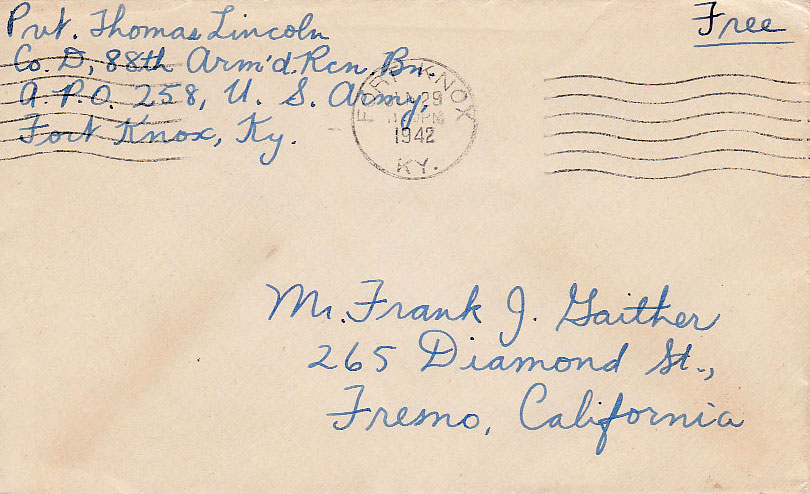 Pvt. Thomas Lincoln
Free
Co. D, 88th Arm'd. Rcn Bn.
A. P. O. 258, U. S. Army,
Fort Knox, Ky.
FORT KNOX
29
PM
1942
KY.
Mr. Frank J. Gaither
265 Diamond St.,
Fresno, California